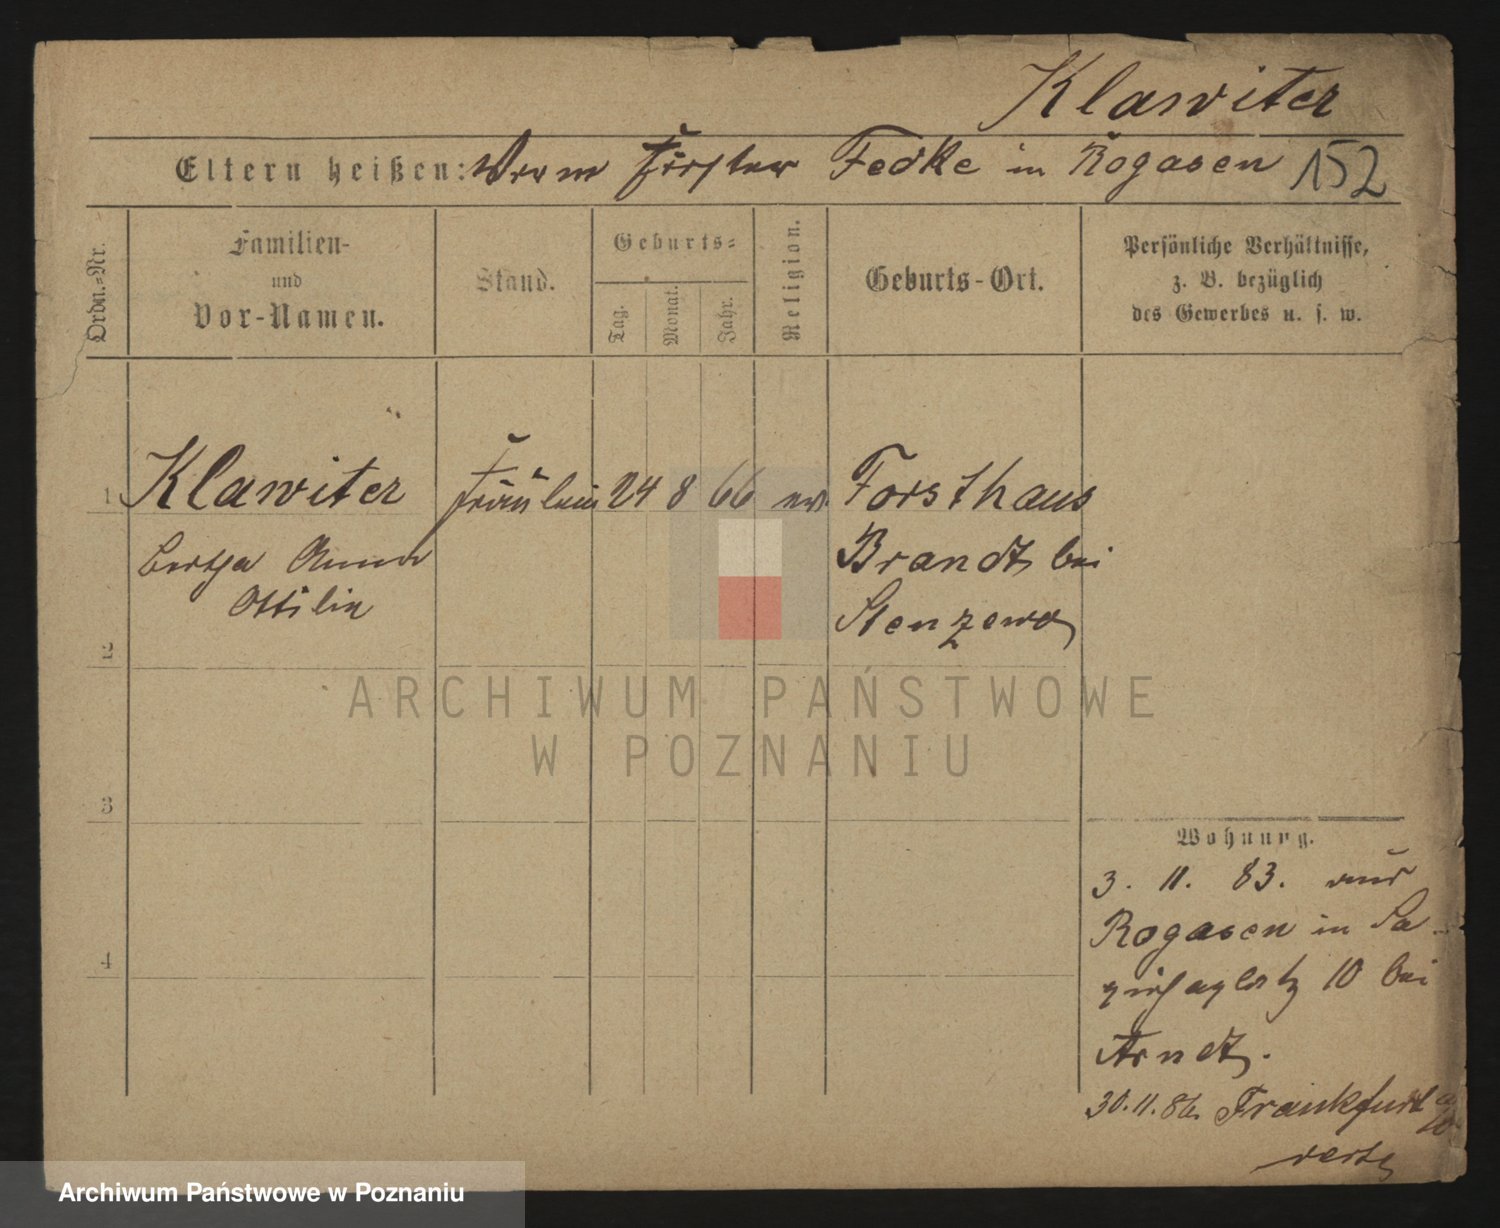 Klawiter
Eltern heißen: Vorm Förster Fedke in Rogasen 152
Ordn.-Nr.
Familien-
und
Vor-Namen.
Stand.
Geburts-
Tag.
Monat.
Jahr.
Religion.
Geburts-Ort.
Persönliche Verhältnisse,
z. B. bezüglich
des Gewerbes u. s. w.
1 Klawiter Fräulein 24 8 66 ev. Forsthaus
Bertha Anna Brandt bei
Ottilie Stenzewo
2
ARCHIWUM PAŃSTWOWE
W POZNANIU
3
Wohnung.
3. 11. 83. aus
Rogasen in Sa-
piehaplatz 10 bei
4
Arndt.
30.11.86. Frankfurt a/O
Archiwum Państwowe w Poznaniu